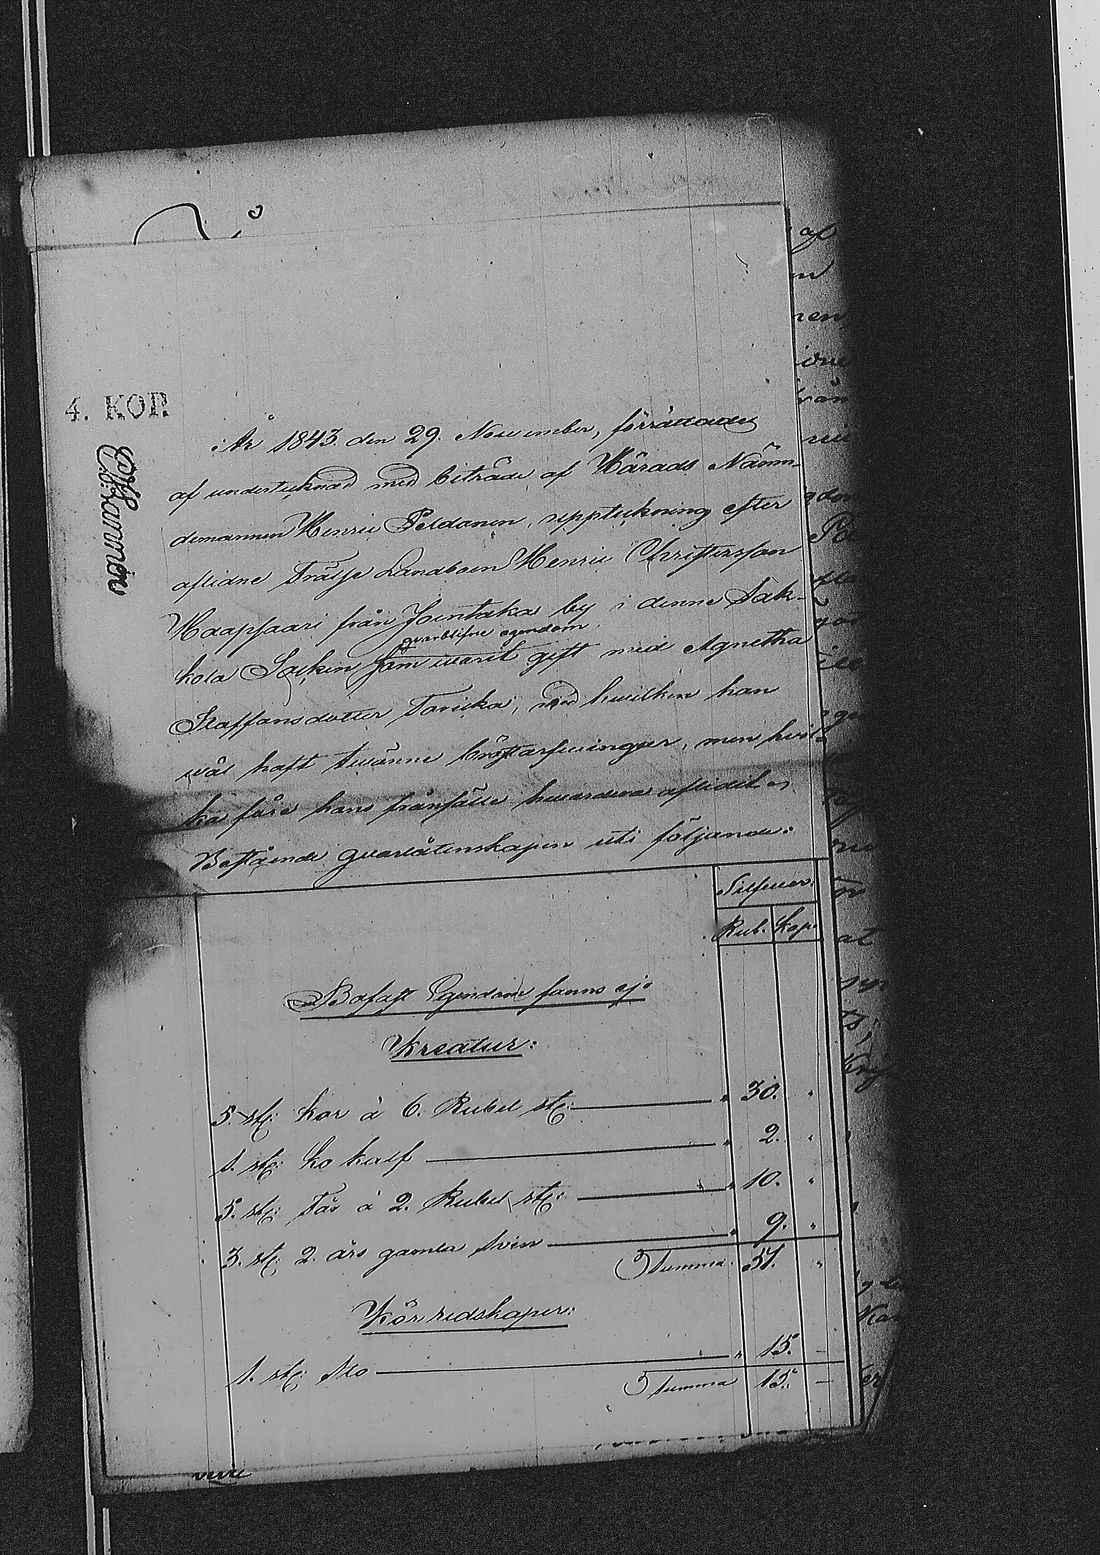 4. KOP.
År 1843 den 29. November, förrättades
af undertecknad med biträde af Härads Nämn-
demannen Henric Peldanen, uppteckning efter
aflidne Frälse Landboen Henric Christersson
Haapsaari från Joentaka by i denna Sak-
qvarblifne egendom
kola Socken som warit gift med Agnetha
Staffansdotter Tanska, med hwilken han
wäl haft twänne bröstarfwingar, men hvil-
ka före hans frånfälle hwardera aflidit
Bestående qvarlåtenskapen uti följande:
Silfwer.
Rub. Kop.
Bofast Egendom fanns ej.
Kreatur:
5. st: kor à 6. Rubel st: 30.
1. st: ko kalf 2.
5. st: Får à 2. Rubel st: 10.
3. st: 2 års gamla Svin 9.
Summa 51.
Körredskaper:
1. st: Sto 15. —
Summa 15. —